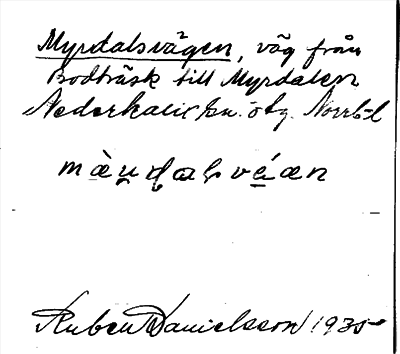 Myrdalsvägen, väg från
Bodträsk till Myrdalen
Nederkalix sn. ö tg. Norrb-l
Ruben Danielsson 1935